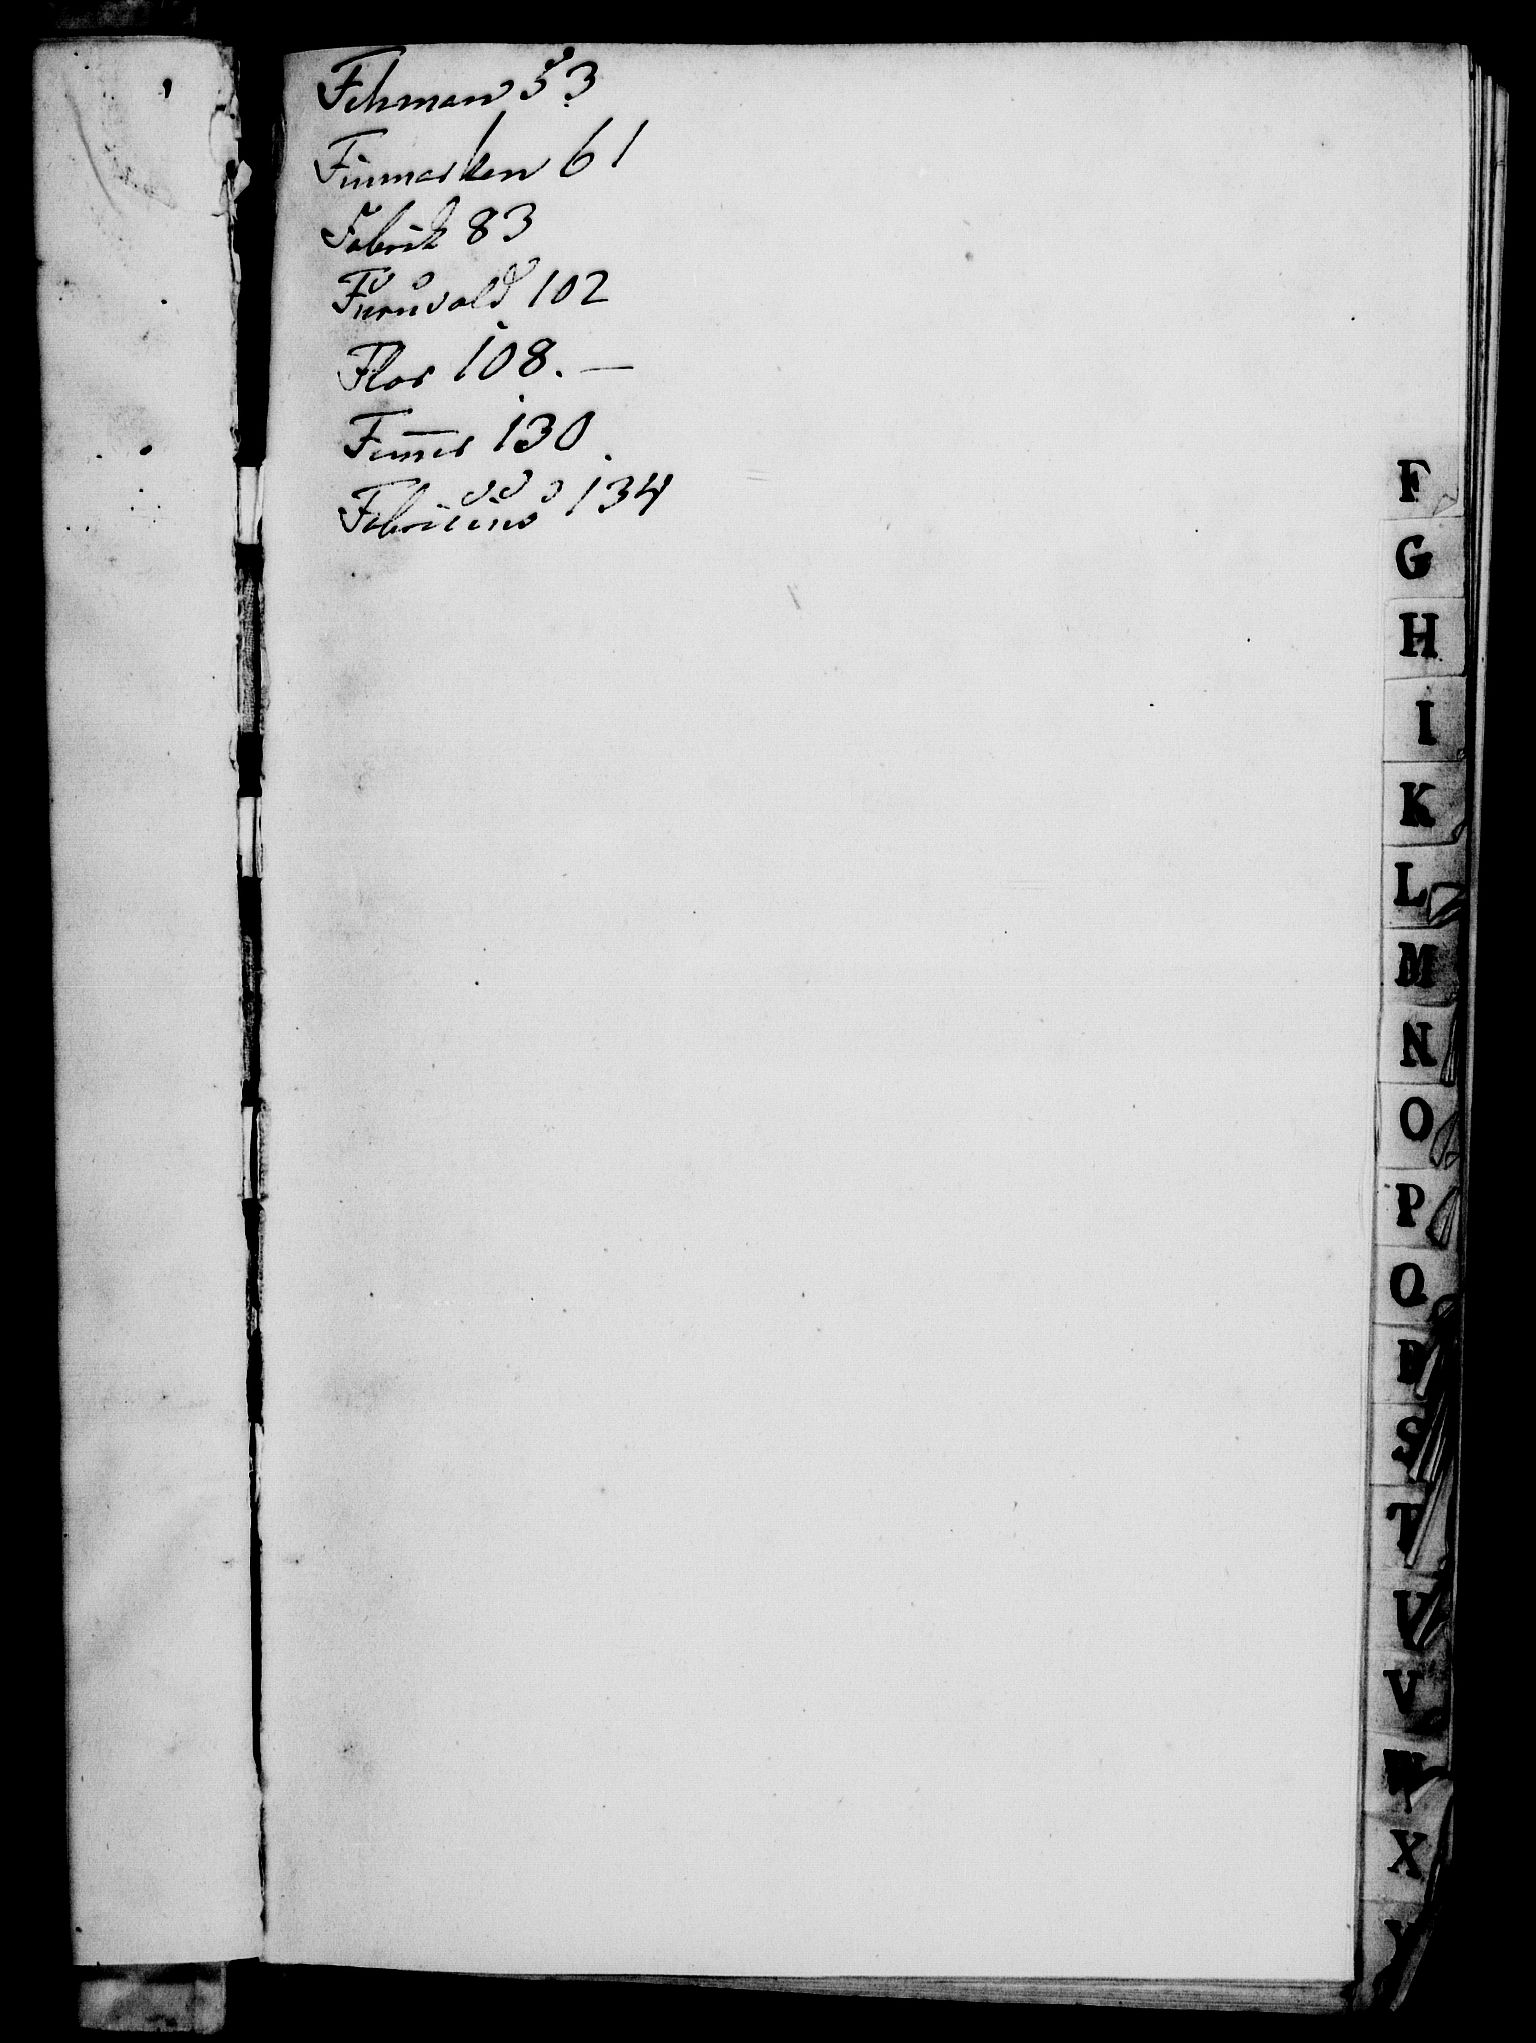 Fehman 53
Finmarken 61
Fabrik 83
Furuvald 102
Flor 108. —
Fem̅er 130.
Fabricius 134
F
G
H
I
K
L
M
N
O
P
Q
R
S
T
V
V
W
X
Y